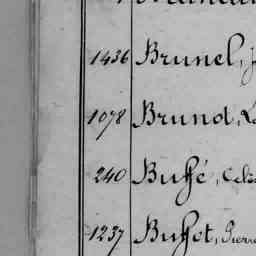 1436 Brunel,
1078 Brunot,
240 Buffé,
1237 Buffet, Pierre